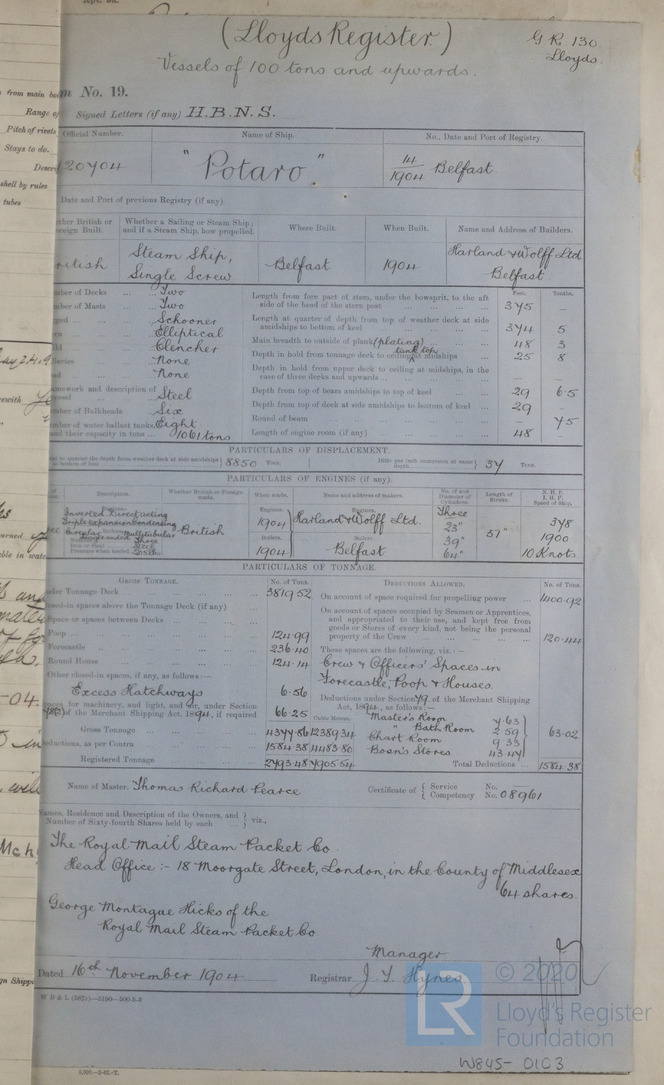 (Lloyds Register.)
G.R. 130
Lloyds.
Vessels of 100 tons and upwards.
No. 19.
Signed Letters (if any) H.B.N.S.
Official Number.
Name of Ship.
No., Date and Port of Registry.
"Potaro"
14/1904 Belfast
Date and Port of previous Registry (if any).
Whether a Sailing or Steam Ship; and if a Steam Ship, how propelled.
Where Built.
When Built.
Name and Address of Builders.
Steam Ship, Single Screw
Belfast
1904
Harland & Wolff Ltd Belfast
Feet. Tenths.
Number of Decks ... Two
Number of Masts ... Two
Schooner
Elliptical
Clencher
None
None
Steel
Number of Bulkheads Six
Number of water ballast tanks, Eight
and their capacity in tons ... 1061 tons
Length from fore part of stem, under the bowsprit, to the aft side of the head of the stern post 375 –
Length at quarter of depth from top of weather deck at side amidships to bottom of keel 374 5
Main breadth to outside of plank (plating) 48 3
Depth in hold from tonnage deck to ceiling at midships tank top 25 8
Depth in hold from upper deck to ceiling at midships, in the case of three decks and upwards – –
Depth from top of beam amidships to top of keel 29 6.5
Depth from top of deck at side amidships to bottom of keel 29 –
Round of beam
Length of engine room (if any) 48 –
PARTICULARS OF DISPLACEMENT.
8850 Tons.
37 Tons.
PARTICULARS OF ENGINES (if any).
Description.
Whether British or Foreign made.
When made.
Name and address of makers.
No. of and Diameter of Cylinders.
Length of Stroke.
N.H.P. I.H.P. Speed of Ship.
Inverted Direct acting
Triple expansion Condensing
British
Engines. 1904
Boilers. 1904
Harland & Wolff Ltd.
Belfast
Three
23"
39"
64"
57"
378
1900
10 Knots
PARTICULARS OF TONNAGE.
GROSS TONNAGE.
No. of Tons.
DEDUCTIONS ALLOWED.
No. of Tons.
Under Tonnage Deck 3819.52
Closed-in spaces above the Tonnage Deck (if any)
Space or spaces between Decks
Poop 124.99
Forecastle 236.40
Round House 124.14
Other closed-in spaces, if any, as follows:—
Excess Hatchways 6.56
Spaces for machinery, and light, and air, under Section 78(2) of the Merchant Shipping Act, 1894, if required 66.25
Cubic Metres.
Gross Tonnage 4377.86 12389.34
Deductions, as per Contra 1584.38 4483.80
Registered Tonnage 2793.48 7905.54
On account of space required for propelling power 1400.92
On account of spaces occupied by Seamen or Apprentices, and appropriated to their use, and kept free from goods or Stores of every kind, not being the personal property of the Crew 120.44
These spaces are the following, viz.:—
Crew & Officers' Spaces in
Forecastle, Poop & Houses.
Deductions under Section 79 of the Merchant Shipping Act, 1894, as follows:—
Master's Room 7.63
" Bath Room 2.59
Chart Room 9.33
Bosn's Stores 43.47
63.02
Total Deductions 1584.38
Name of Master. Thomas Richard Pearce
Certificate of { Service No.
Competency No. 08961
Names, Residence and Description of the Owners, and Number of Sixty-fourth Shares held by each } viz.,
The Royal Mail Steam Packet Co
Head Office :- 18 Moorgate Street, London, in the County of Middlesex
64 shares.
George Montague Hicks of the
Royal Mail Steam Packet Co
Manager
Dated 16th November 1904
Registrar J. T. Hynes
© 2020
LR Lloyd's Register
Foundation
W845-0103